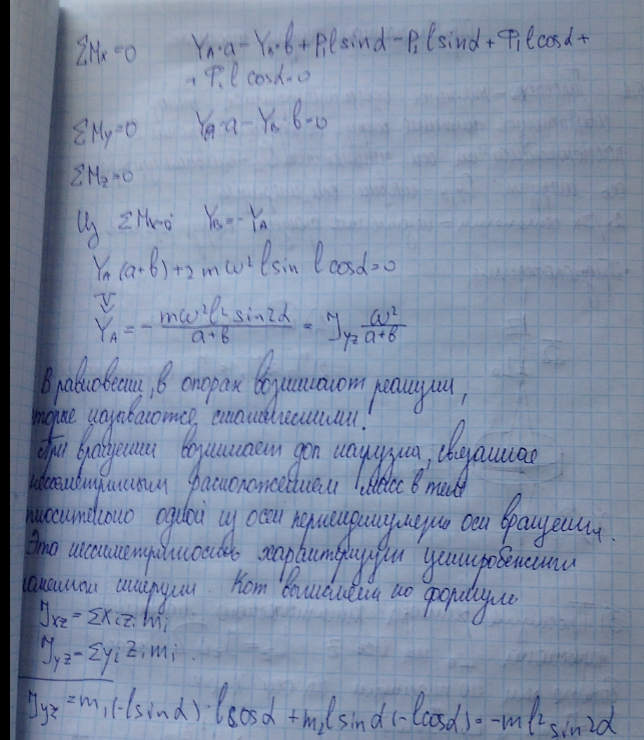 ΣMx=0 YA·a-YA·b+P1lsinα-P1lsinα+Φ1lcosα+
+Φ1lcosα=0
ΣMy=0 YA·a-YB·b=0
ΣMz=0
Из ΣMx=0 YB=-YA
YA(a+b)+2mω²lsin lcosα=0
⇓
YA=-mω²l²sin2α/a+b = Jyz ω²/a+b
В равновесии, в опорах возникают реакции,
торые называются статическими.
При вращении возникает доп нагрузка, связанная
нессиметричным расположением масс в теле
тносительно одной из осей перпендикулярно оси вращения.
Эта нессиметричность характеризуют центробежный
моментом инерции. Кот вычисляем по формуле
Jxz=Σxizimi
Jyz=Σyizimi.
Jyz=m1(-lsinα)·lcosα+m2lsinα(-lcosα)=-ml²sin2α